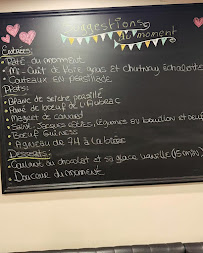 Suggestions
du moment
Entrées:
• Pâté du moment
• Mi-Cuit de foie gras et chutney échalottes
• Couteaux en persillade
Plats:
• Blanc de seiche persillé
• Pavé de boeuf de l'Aubrac
• Magret de canard
• Saint Jacques rôties, légumes en bouillon et
• Boeuf Guiness
• Agneau de 7H à la bière
Desserts:
• Coulant au chocolat et sa glace vanille (15min)
• Douceur du moment